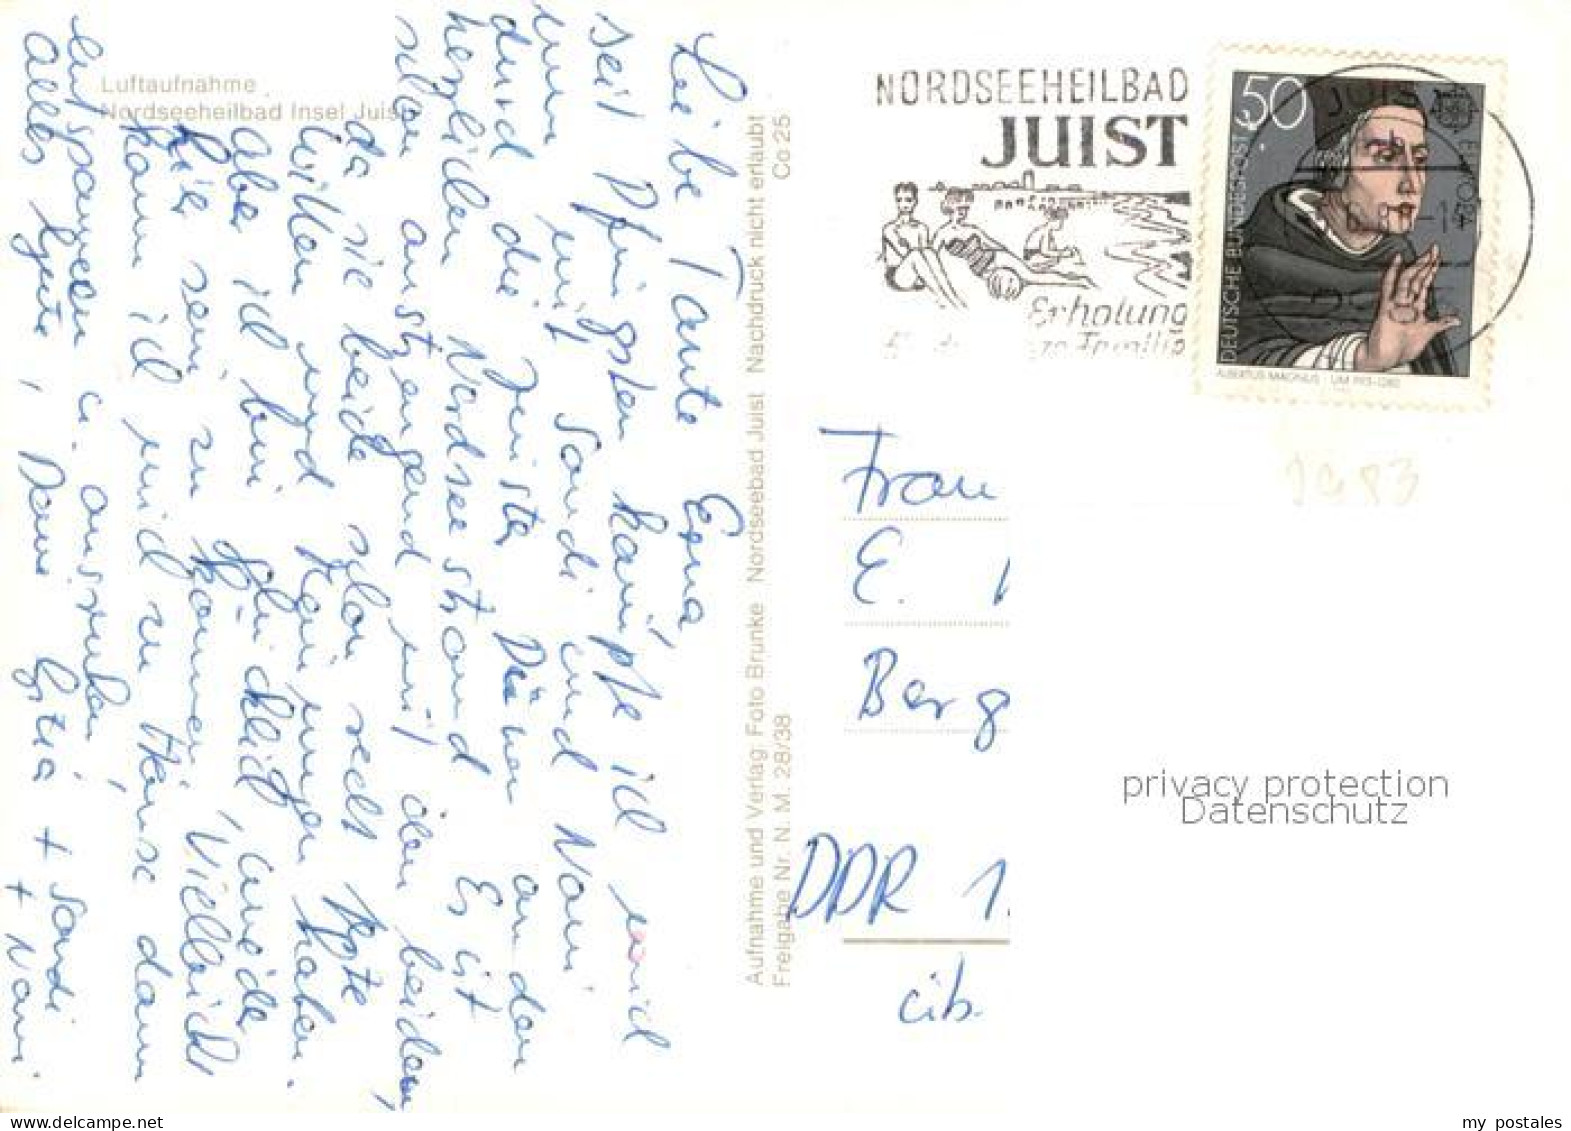 Luftaufnahme
Nordseeheilbad Insel Juist
Liebe Tante Erna,
seit Pfingsten kämpfe ich mich
nun mit Sandi und Nani
durch die Juister Dünen an den
herrlichen Nordseestrand. Es ist
schon anstrengend mit den beiden,
da sie beide schon recht feste
Willen und Meinungen haben.
Aber ich bin glücklich, wieder
hier sein zu können. Vielleicht
kann ich mich zu Hause dann
entspannen u. ausruhen.
Alles Gute, Deine + Sandi
+ Nani
Aufnahme und Verlag: Foto Brunke Nordseebad Juist Nachdruck nicht erlaubt
Freigabe Nr. N. M. 28/38 Co 25
NORDSEEHEILBAD
JUIST
Erholung
50
JUIS
DEUTSCHE BUNDESPOST
EUROPA
ALBERTUS MAGNUS · UM 1193-1280
Frau
E.
Berg
DDR 1
privacy protection
Datenschutz
my postales